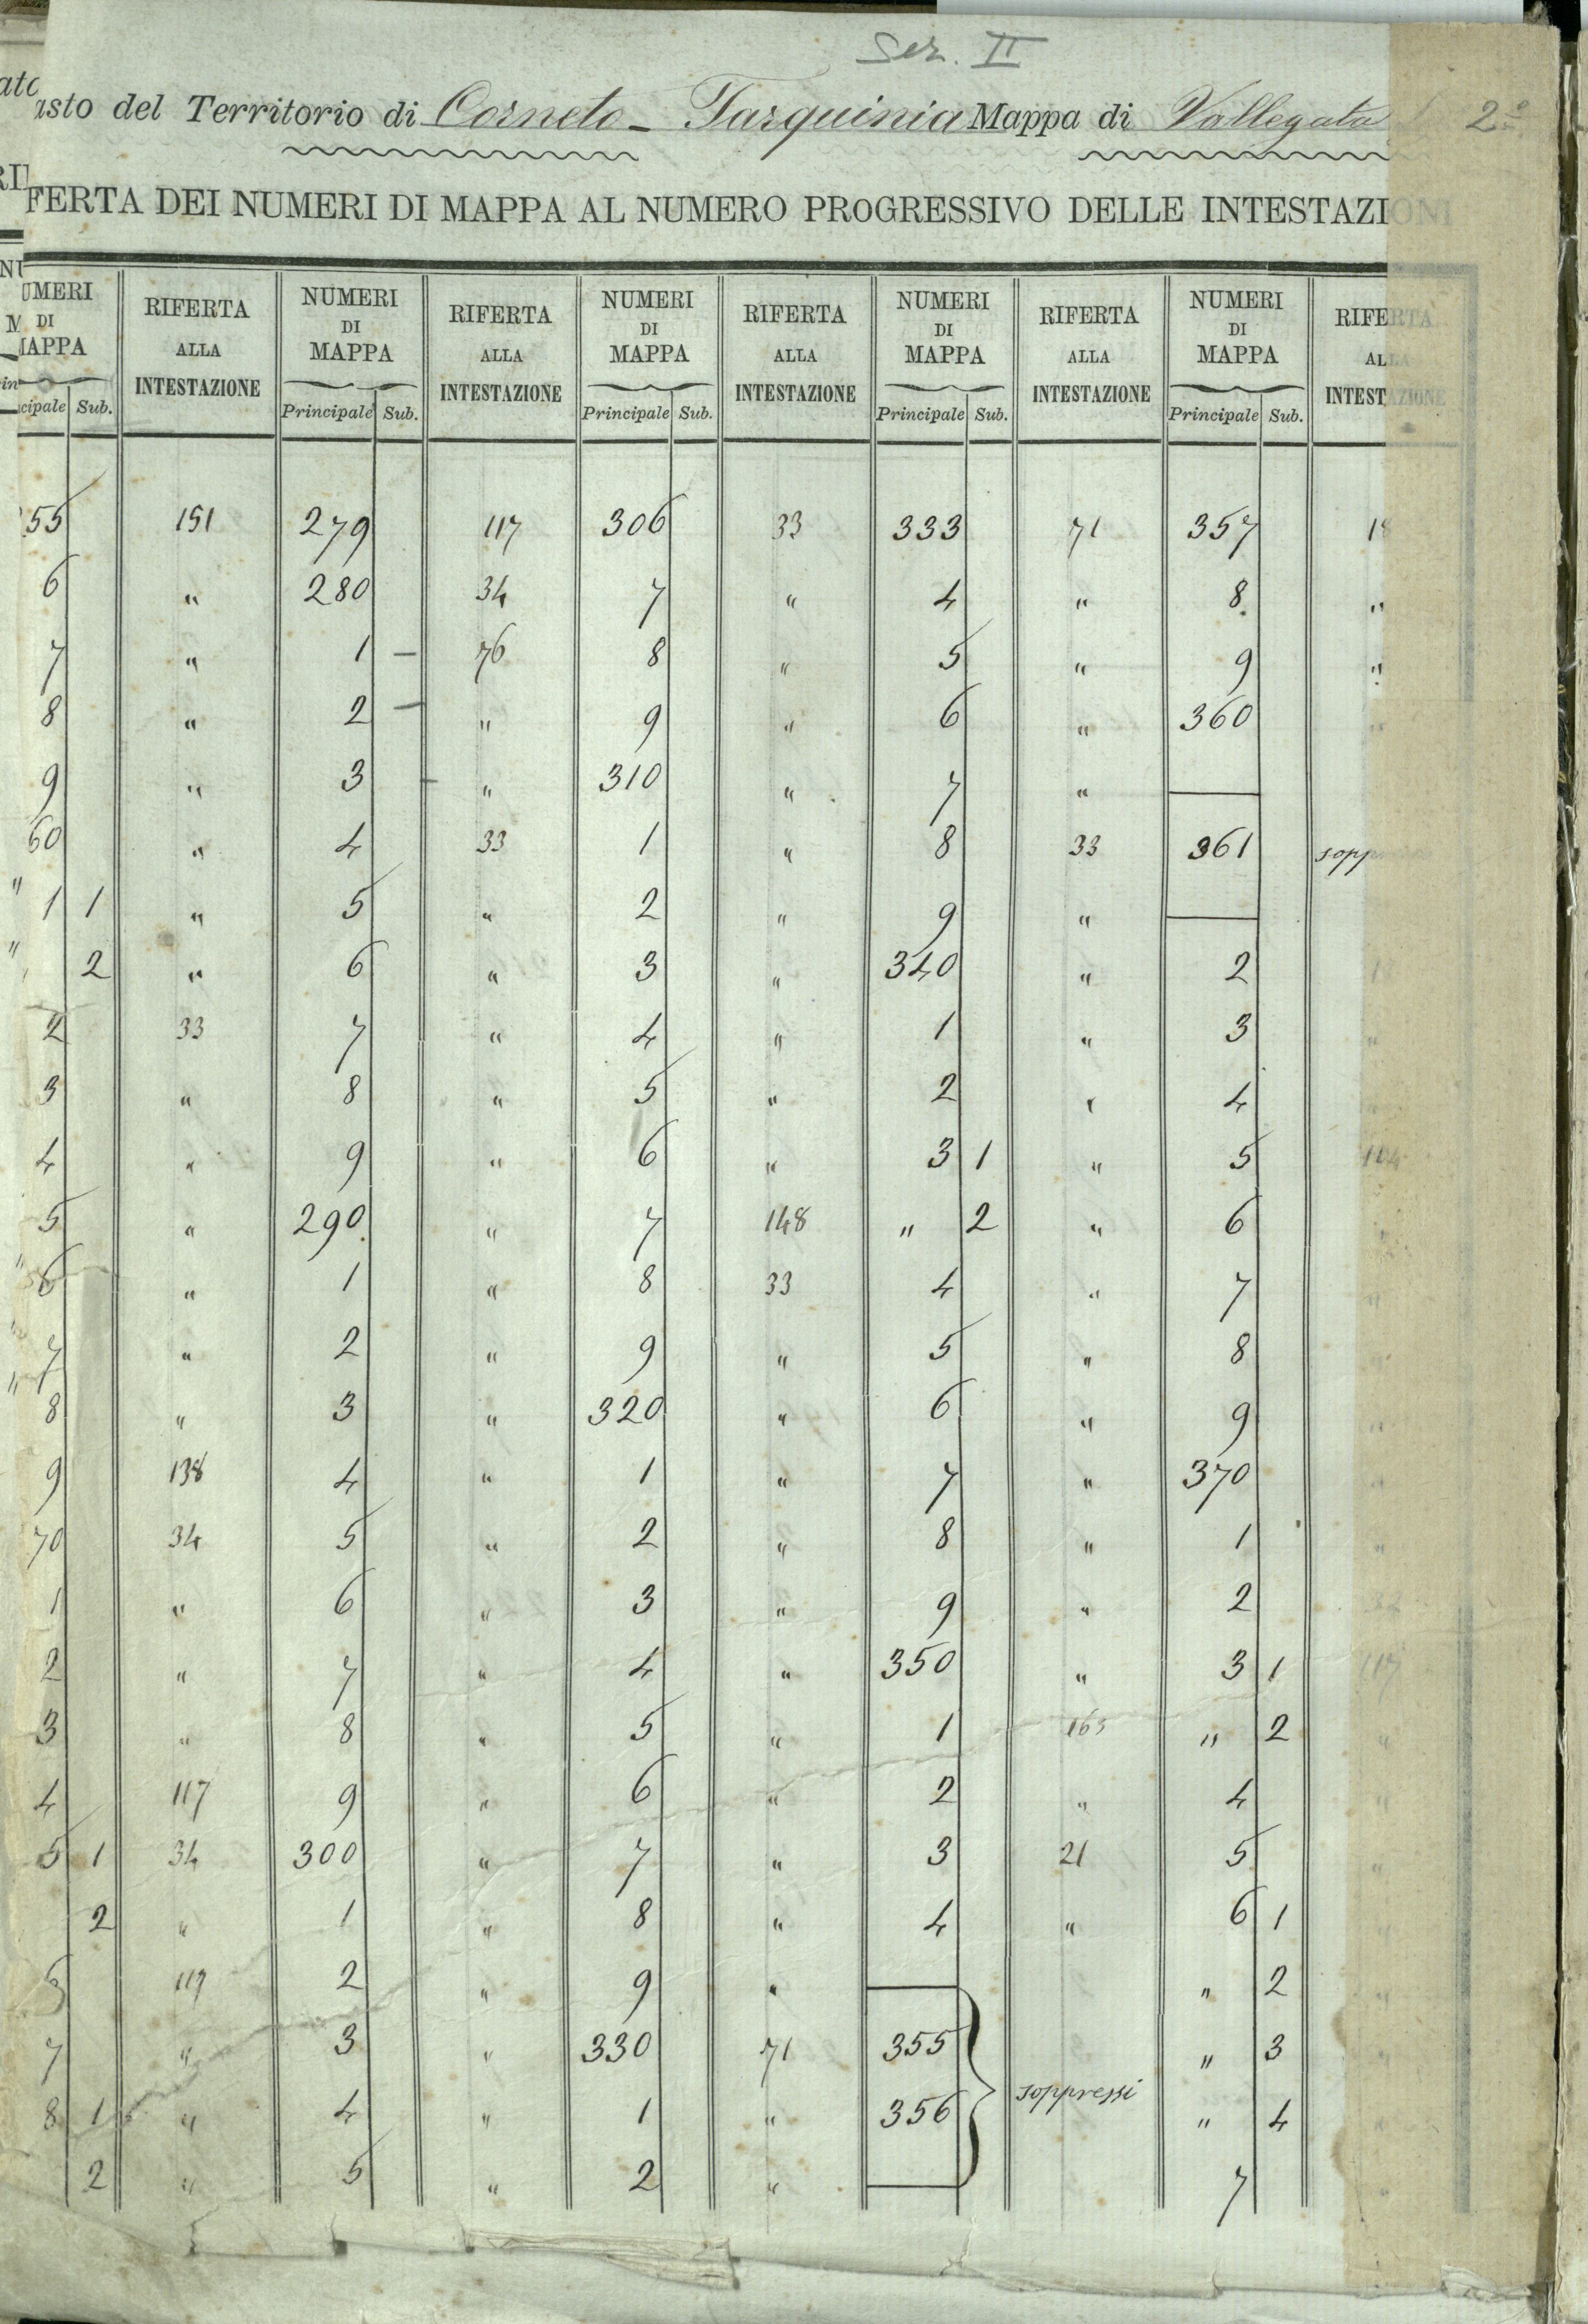 Sez. II
asto del Territorio di Corneto - Tarquinia Mappa di Vallegata 2°
FERTA DEI NUMERI DI MAPPA AL NUMERO PROGRESSIVO DELLE INTESTAZIONI
UMERI DI MAPPA RIFERTA ALLA INTESTAZIONE NUMERI DI MAPPA RIFERTA ALLA INTESTAZIONE NUMERI DI MAPPA RIFERTA ALLA INTESTAZIONE NUMERI DI MAPPA RIFERTA ALLA INTESTAZIONE NUMERI DI MAPPA RIFERTA ALLA INTESTAZIONE
cipale Sub. Principale Sub. Principale Sub. Principale Sub. Principale Sub.
55 151 279 117 306 33 333 71 357
6 " 280 34 7 " 4 " 8 "
7 " 1 - 76 8 " 5 " 9 "
8 " 2 - " 9 " 6 " 360 "
9 " 3 - " 310 " 7 "
60 " 4 33 1 " 8 33 361
" 1 1 " 5 " 2 " 9 "
" 2 " 6 " 3 " 340 " 2
2 33 7 " 4 " 1 " 3 "
3 " 8 " 5 " 2 " 4
4 " 9 " 6 " 3 1 " 5
5 " 290 " 7 148 " 2 " 6 "
6 " 1 " 8 33 4 " 7 "
7 " 2 " 9 " 5 " 8 "
8 " 3 " 320 " 6 " 9 "
9 138 4 " 1 " 7 " 370 "
70 34 5 " 2 " 8 " 1 "
1 " 6 " 3 " 9 " 2
2 " 7 " 4 " 350 " 3 1 117
3 " 8 " 5 " 1 163 " 2 "
4 117 9 " 6 " 2 " 4 "
5 1 34 300 " 7 " 3 21 5 "
2 " 1 " 8 " 4 " 6 1 "
117 2 " 9 " " 2 "
7 " 3 " 330 71 355 " 3 "
8 1 " 4 " 1 " 356 soppressi " 4 "
2 " 5 " 2 " 7 "